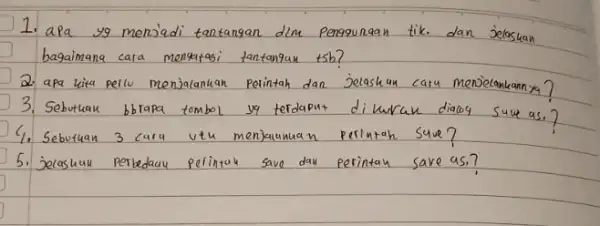 1. apa yg menjadi tantangan dlm penggunaan tik. dan jelaskan
bagaimana cara mengatasi tantangan tsb?
2. apa kita perlu menjalankan perintah dan jelaskan cara menjelankannya?
3. Sebutkan bbrapa tombol yg terdapat di kotak dialog save as.?
4. Sebutkan 3 cara utu menjalankan perintah save?
5. jelaskan perbedaan perintah save dan perintah save as.?